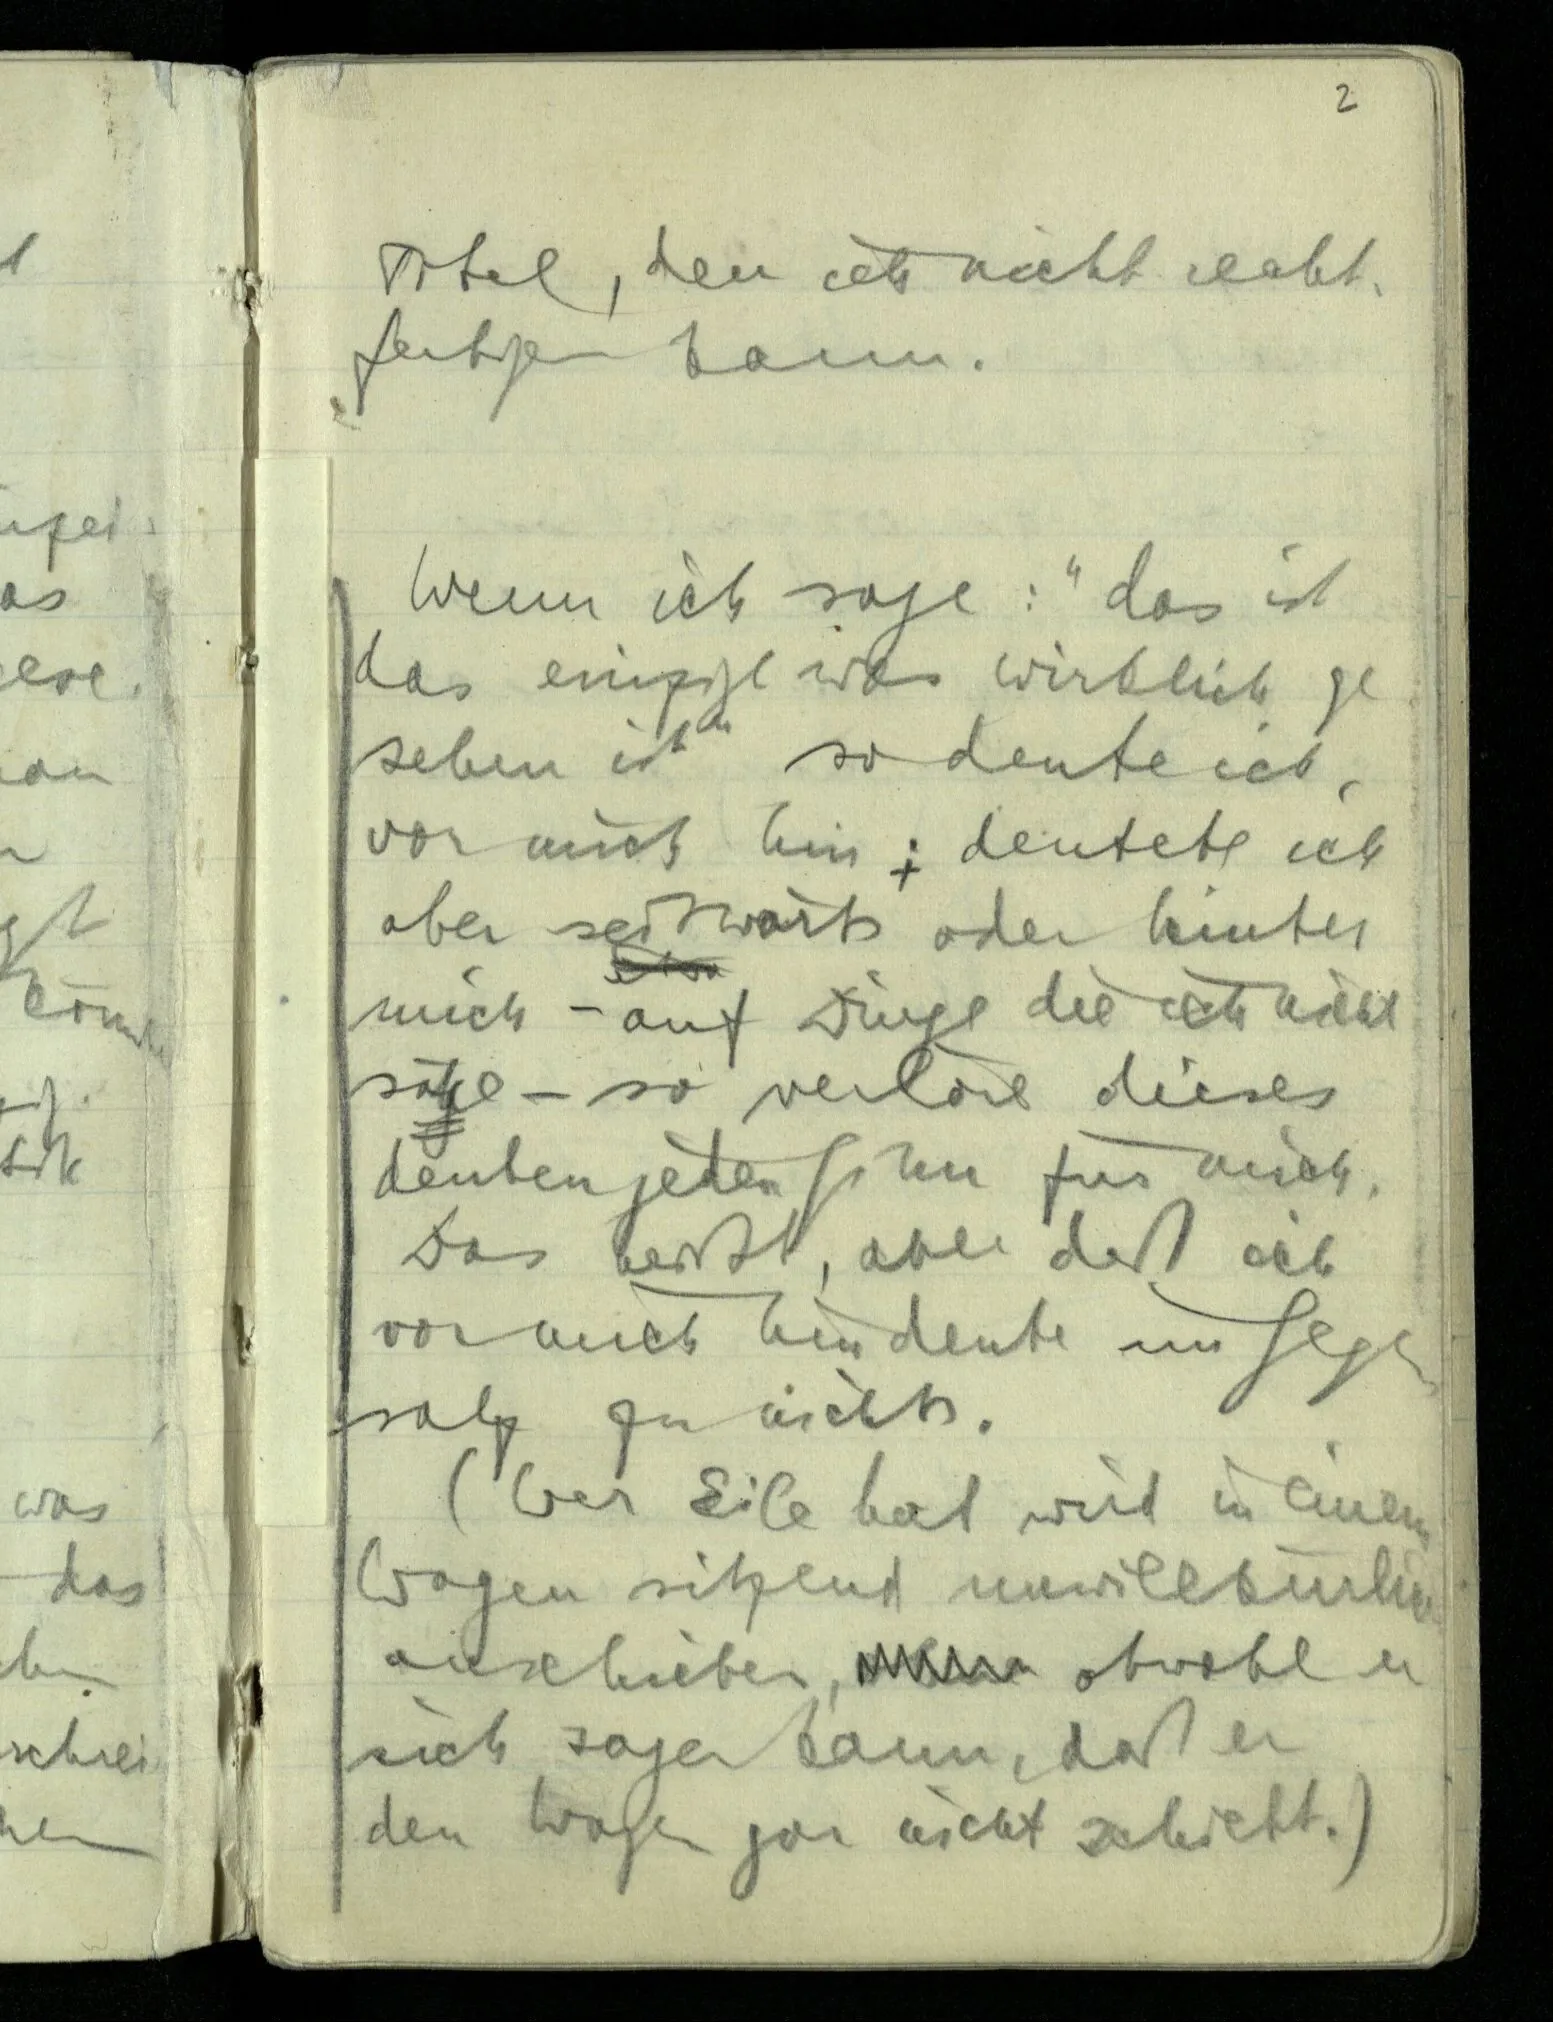 2
Titel, den ich nicht recht-
fertigen kann.
Wenn ich sage: "das ist
das einzige was wirklich ge
sehen ist" so deute ich
vor mich hin; deutete ich
aber seitwärts oder hinter
mich – auf Dinge die ich nicht
sähe – so verlöre dieses
deuten jeden Sinn für mich.
Das heißt, aber daß ich
vor mich hin deute im Gegen
satz zu nichts.
(Wer Eile hat wird in einem
Wagen sitzend unwillkürlich
anschieben, obwohl er
sich sagen kann, daß er
den Wagen gar nicht schiebt.)
was
das